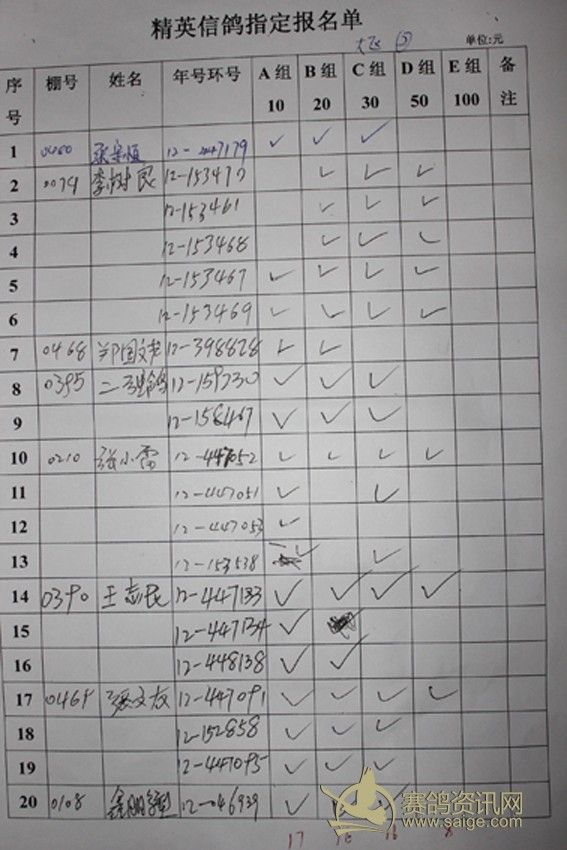 精英信鸽指定报名单
单位:元
序号 棚号 姓名 年号环号 A组 10 B组 20 C组 30 D组 50 E组 100 备注
1 12- ✓ ✓ ✓
2 李树民 12-153470 ✓ ✓ ✓
3 12-153461 ✓ ✓ ✓
4 12-153468 ✓ ✓ ✓
5 12-153467 ✓ ✓ ✓ ✓
6 12-153469 ✓ ✓ ✓ ✓
7 0468 12-398828 ✓ ✓
8 0395 12-159730 ✓ ✓ ✓
9 12-158467 ✓ ✓ ✓
10 0210 张小雷 12-447052 ✓ ✓ ✓ ✓
11 12-447051 ✓ ✓
12 12-447053 ✓
13 12-153538 ✓ ✓
14 0390 王志民 12-447133 ✓ ✓ ✓ ✓
15 12-447134 ✓
16 12-448138 ✓ ✓
17 张文友 12-447091 ✓ ✓ ✓ ✓
18 12-152858 ✓ ✓ ✓
19 12-447095 ✓ ✓ ✓
20 0108 12-046939 ✓ ✓ ✓
17 16 8
赛鸽资讯网
www.saige.com